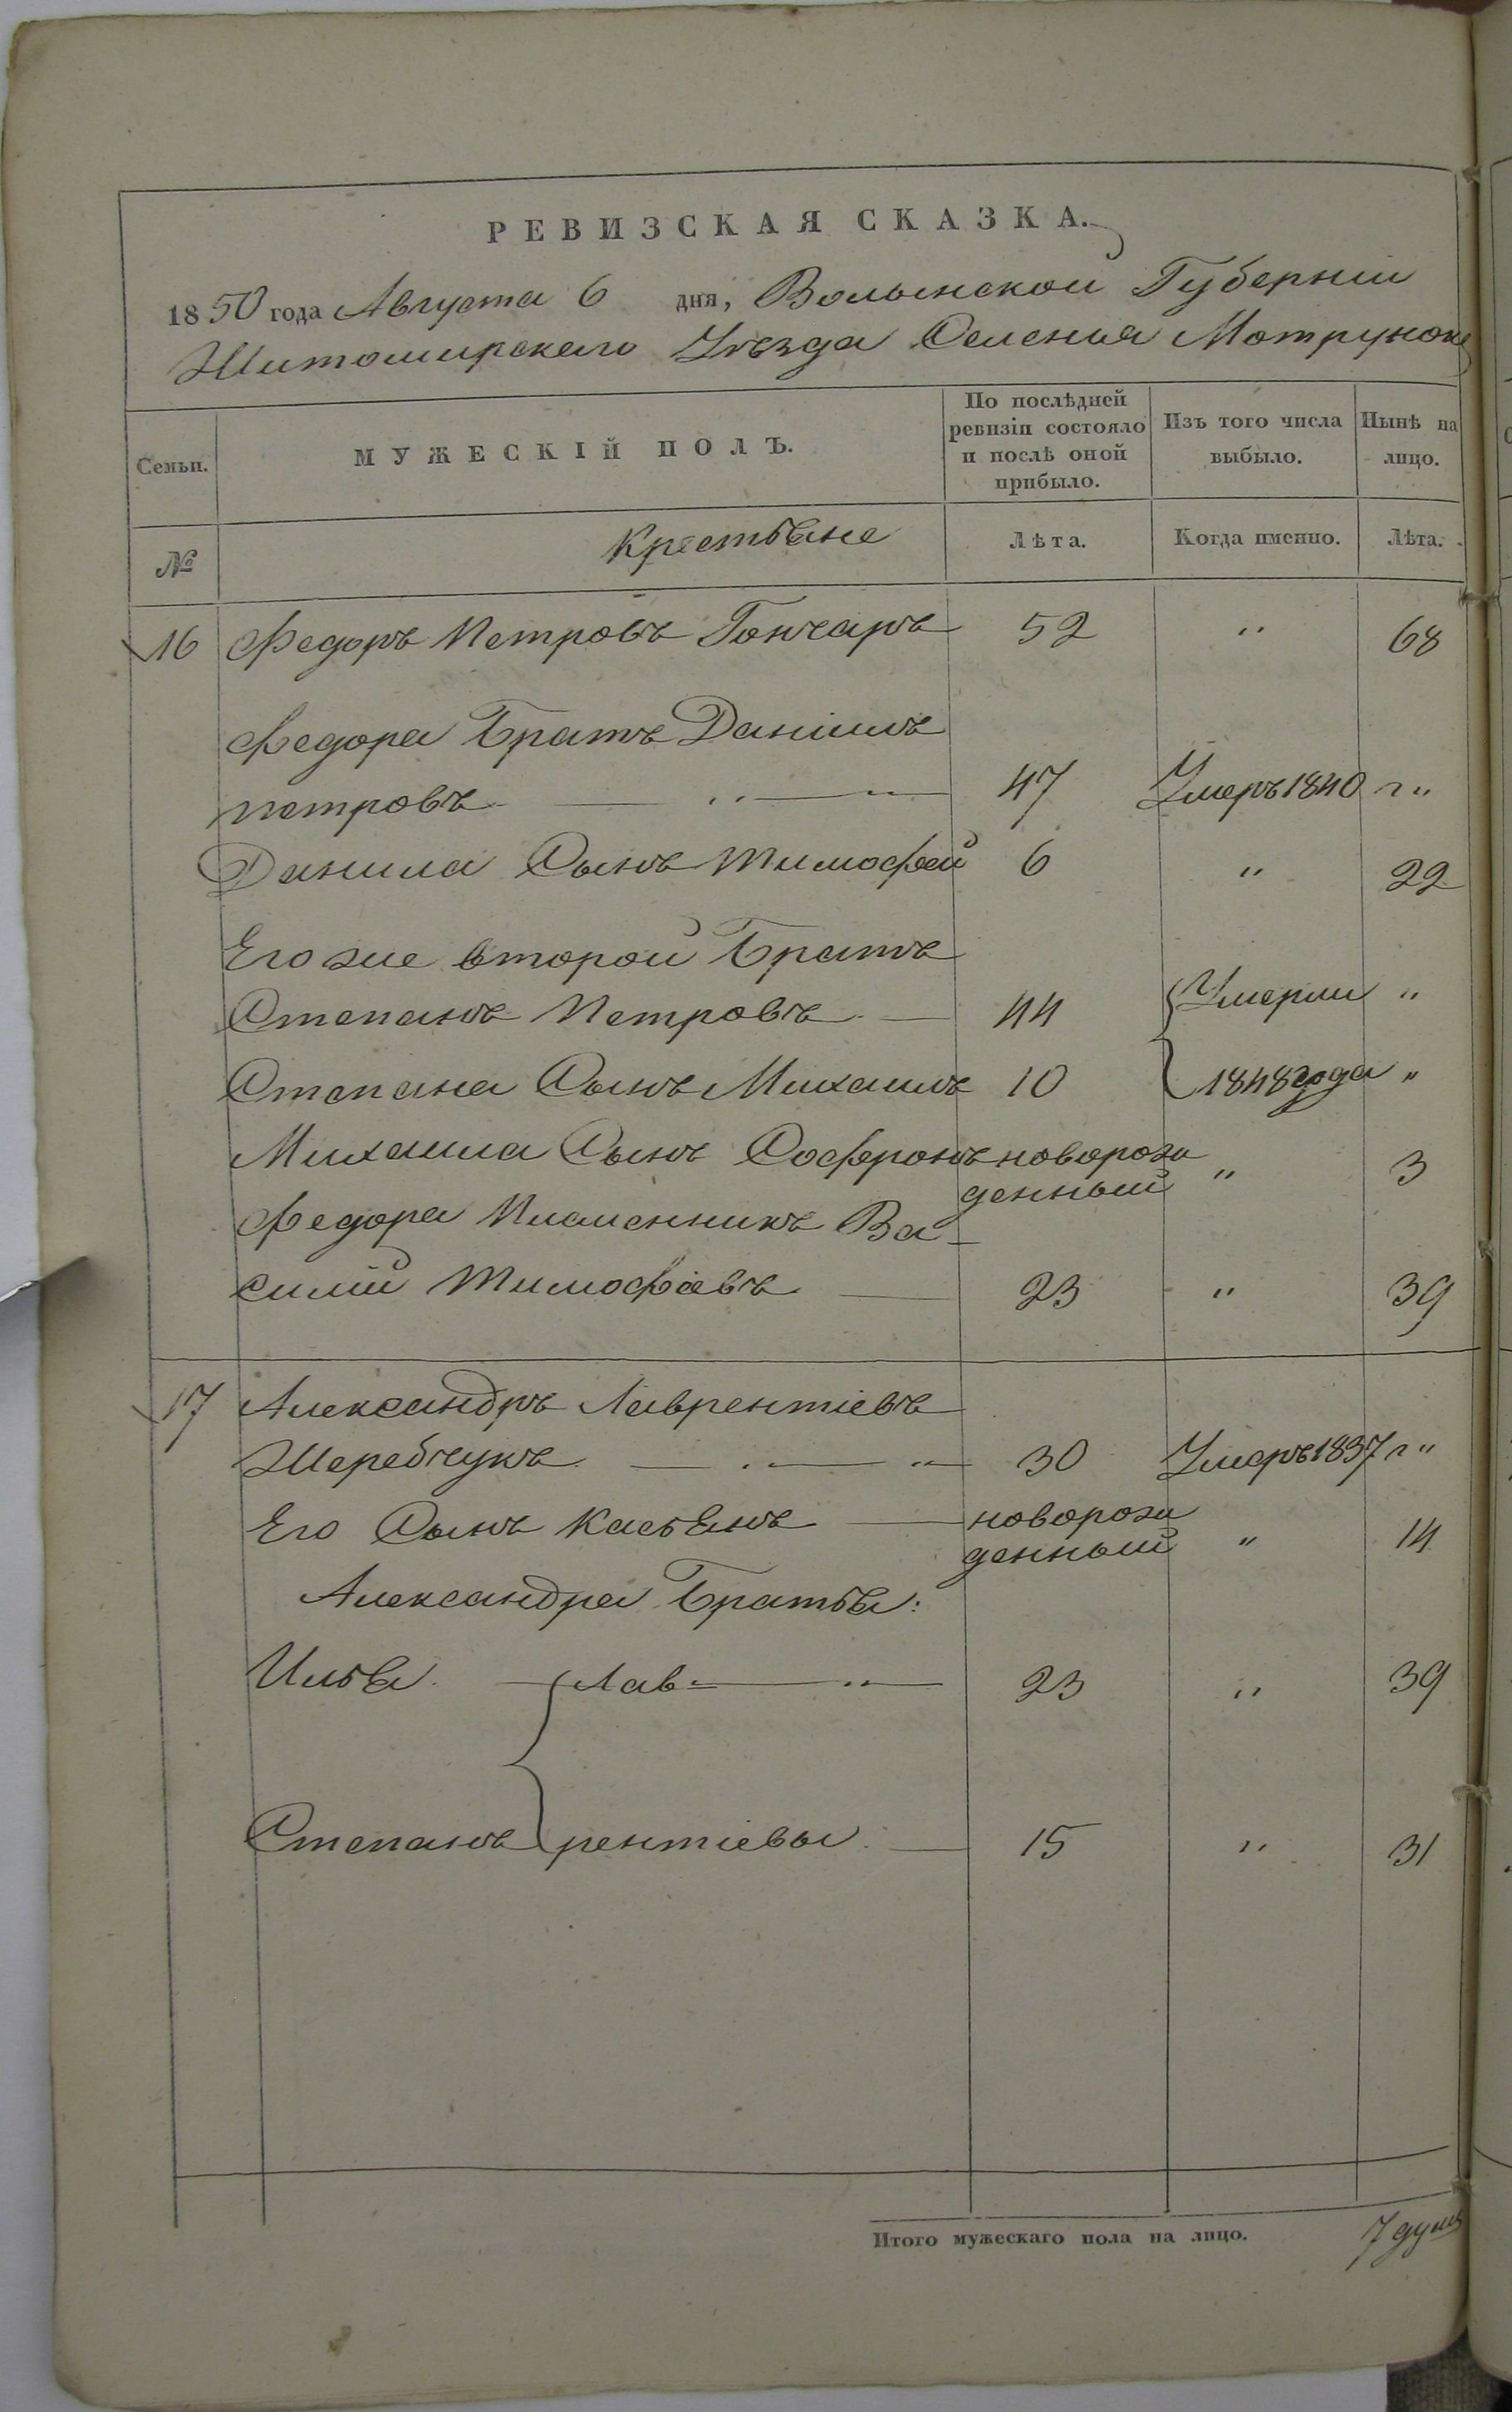 РЕВИЗСКАЯ СКАЗКА.
1850 года Августа 6 дня, Волынской Губерніи
Житомирскаго Уѣзда Селенія Мотрунокъ
Семьи. МУЖЕСКІЙ ПОЛЪ. По послѣдней ревизіи состояло и послѣ оной прибыло. Изъ того числа выбыло. Нынѣ на лицо.
№ Крестьяне Лѣта. Когда именно. Лѣта.
16 Федоръ Петровъ Гончаръ 52 " 68
Федора Братъ Даніилъ
петровъ — " — " 47 Умеръ 1840 г "
Данила Сынъ Тимофей 6 " 22
Его же второй Братъ
Степанъ Петровъ — 44 Умерли "
Степана Сынъ Михаилъ 10 1848 года "
Михаила Сынъ Софронъ новорож
денный " 3
Федора Племенникъ Ва-
силій Тимофѣевъ — 23 " 39
17 Александръ Лаврентіевъ
Жеребчукъ — " — " 30 Умеръ 1837 г "
Его Сынъ Касьянъ — новорож
денный " 14
Александра Братья:
Илья — Лав= — " — 23 " 39
Степанъ рентіевы — 15 " 31
Итого мужескаго пола на лицо. 7 душъ